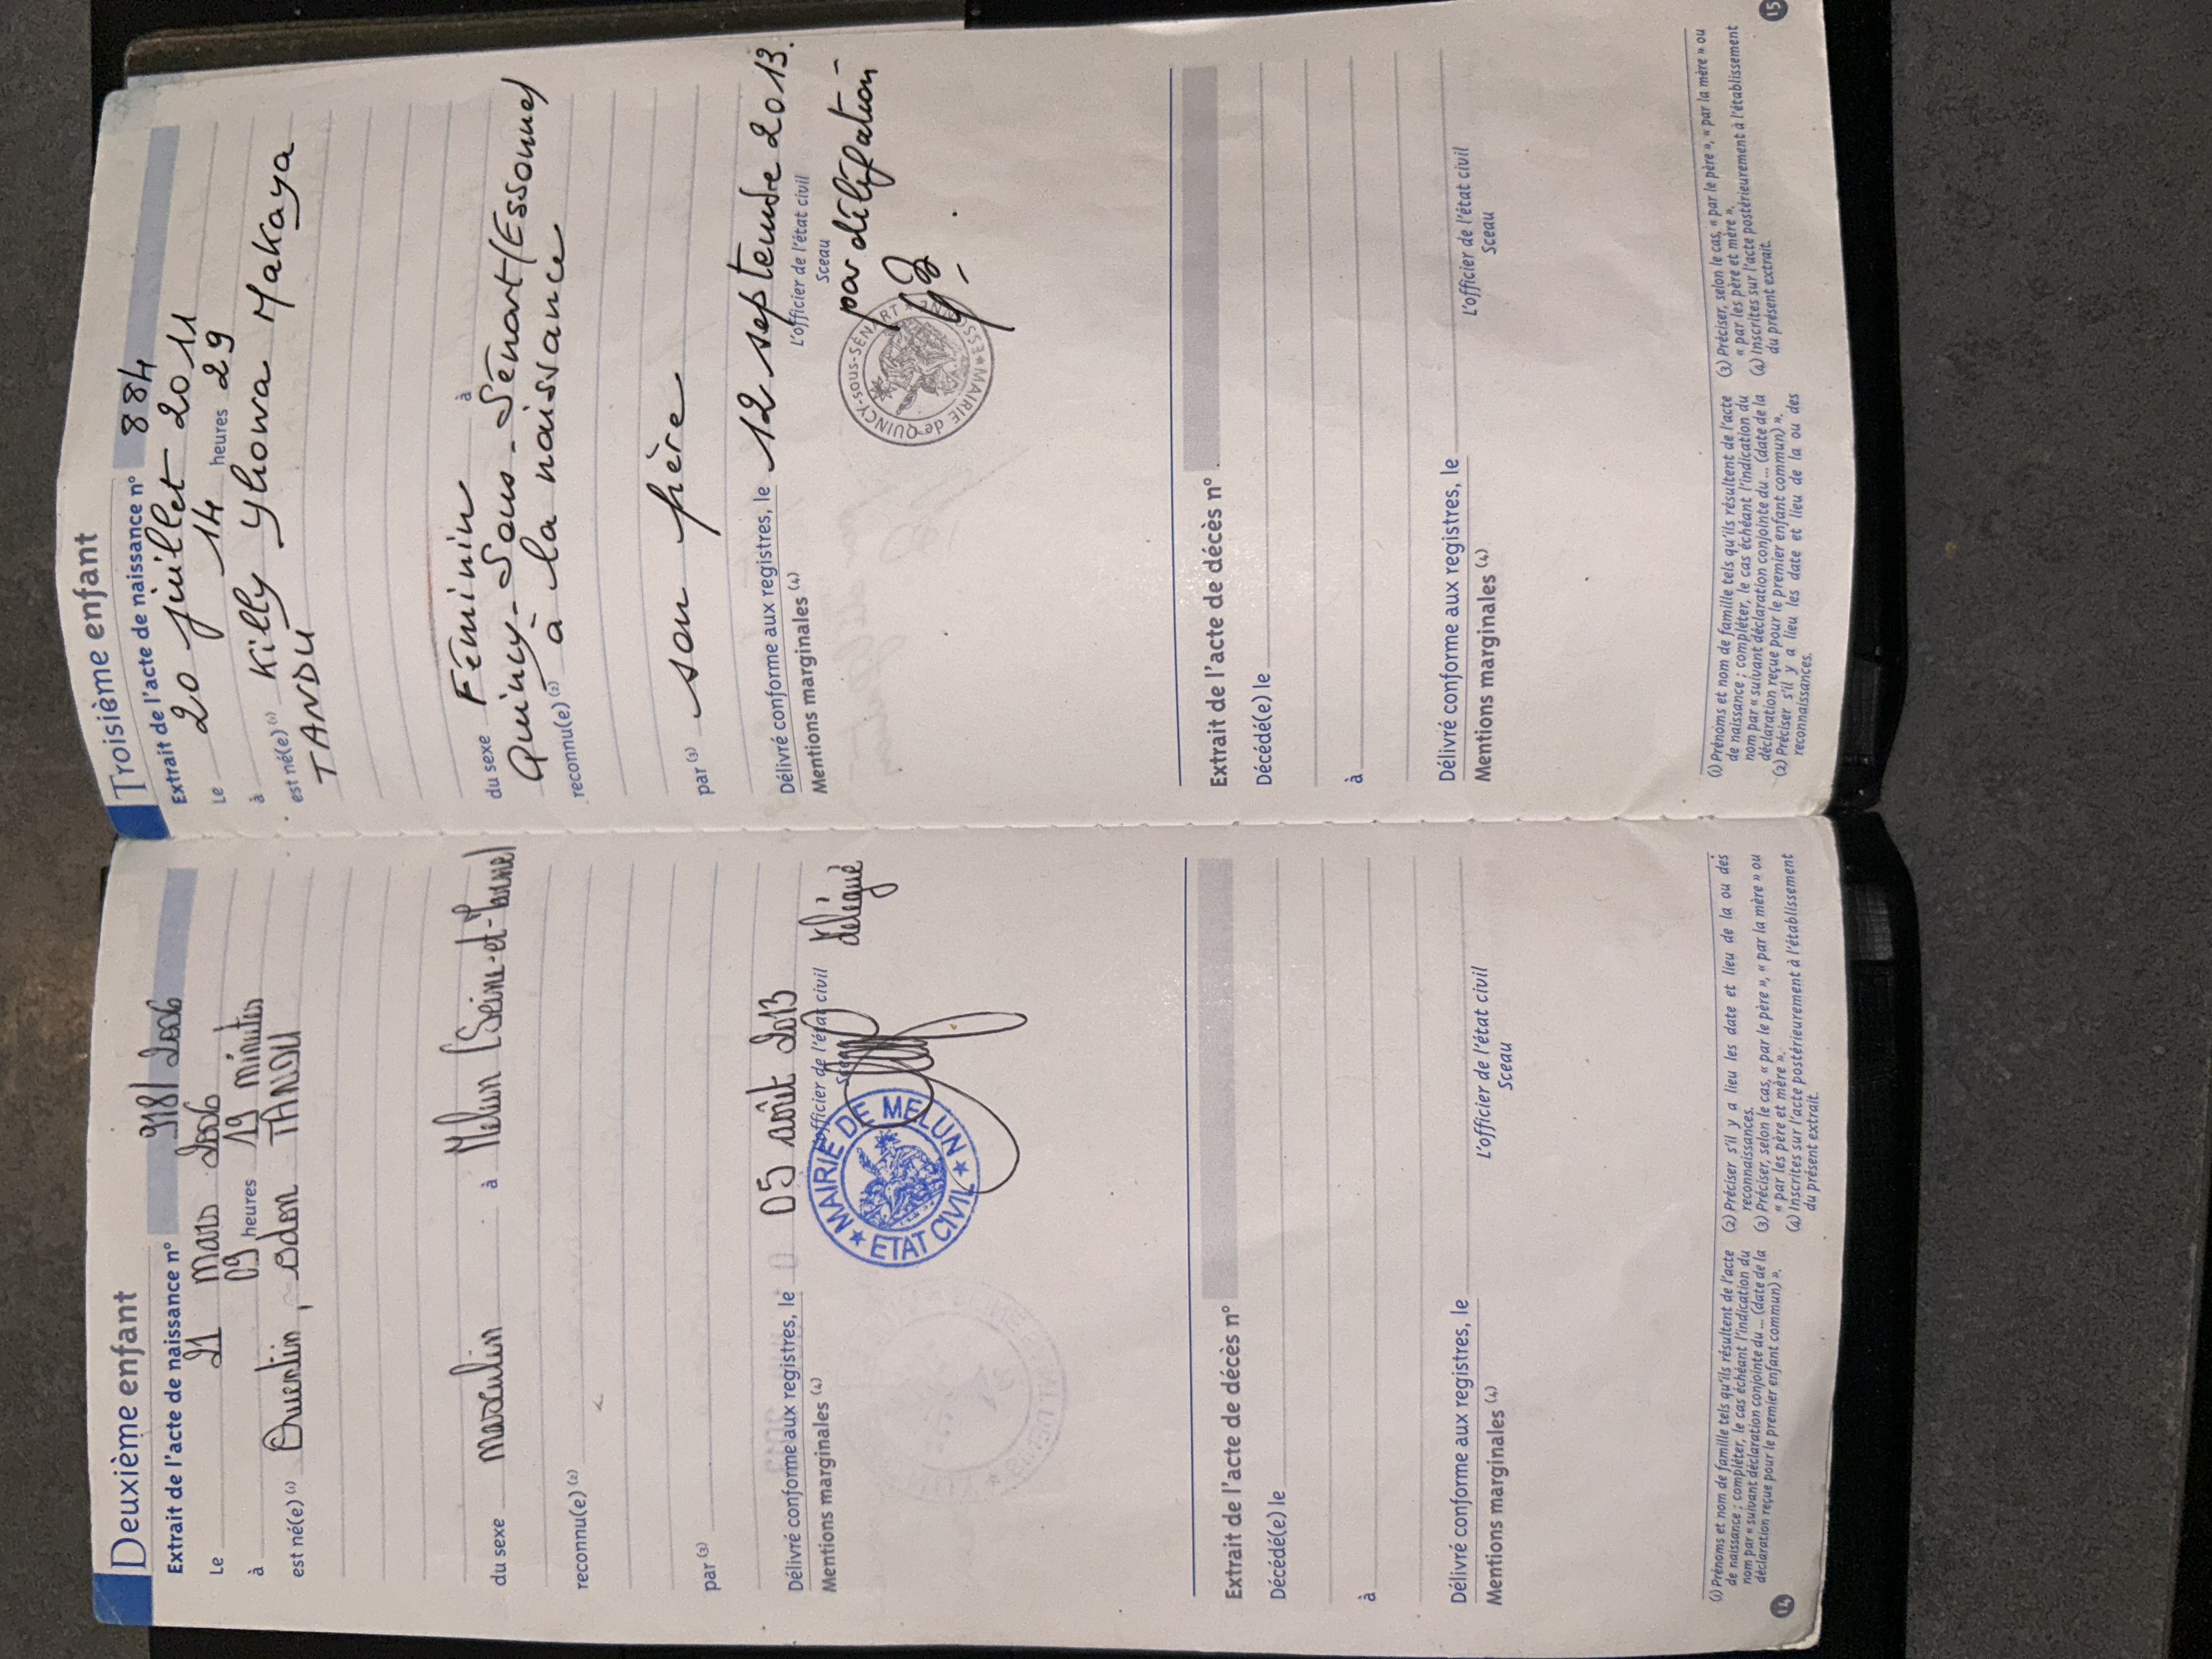 Deuxième enfant
Extrait de l'acte de naissance n° 918/2006
Le 21 mars 2006
à 09 heures 19 minutes
est né(e) (1) Quentin, Odon TANDU
du sexe masculin à Melun (Seine-et-Marne)
reconnu(e) (2)
par (3)
Délivré conforme aux registres, le 05 août 2013
Mentions marginales (4)
L'officier de l'état civil délégué
Sceau
MAIRIE DE MELUN
ETAT CIVIL
Extrait de l'acte de décès n°
Décédé(e) le
à
Délivré conforme aux registres, le
Mentions marginales (4)
L'officier de l'état civil
Sceau
(1) Prénoms et nom de famille tels qu'ils résultent de l'acte
de naissance ; compléter, le cas échéant l'indication du
nom par « suivant déclaration conjointe du ... (date de la
déclaration reçue pour le premier enfant commun) ».
(2) Préciser s'il y a lieu les date et lieu de la ou des
reconnaissances.
(3) Préciser, selon le cas, « par le père », « par la mère » ou
« par les père et mère ».
(4) Inscrites sur l'acte postérieurement à l'établissement
du présent extrait.
14
Troisième enfant
Extrait de l'acte de naissance n° 884
Le 20 juillet 2011
à 14 heures 29
est né(e) (1) Killy Yhowa Makaya
TANDU
du sexe Féminin à
Quincy-Sous-Sénart (Essonne)
reconnu(e) (2) à la naissance
par (3) son père
Délivré conforme aux registres, le 12 septembre 2013.
Mentions marginales (4)
L'officier de l'état civil
Sceau
par délégation
MAIRIE de QUINCY-sous-SÉNART
ESSONNE
Extrait de l'acte de décès n°
Décédé(e) le
à
Délivré conforme aux registres, le
Mentions marginales (4)
L'officier de l'état civil
Sceau
(1) Prénoms et nom de famille tels qu'ils résultent de l'acte
de naissance ; compléter, le cas échéant l'indication du
nom par « suivant déclaration conjointe du ... (date de la
déclaration reçue pour le premier enfant commun) ».
(2) Préciser s'il y a lieu les date et lieu de la ou des
reconnaissances.
(3) Préciser, selon le cas, « par le père », « par la mère » ou
« par les père et mère ».
(4) Inscrites sur l'acte postérieurement à l'établissement
du présent extrait.
15